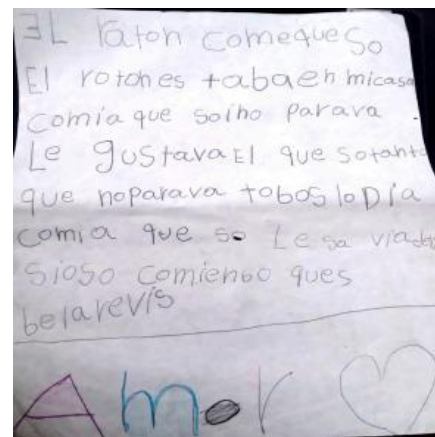 EL raton comequeso
El roton es tabaen micasa
comia que soiho parava
Le gustava El que sotanto
que noparava tobos lo Dia
comia que so Le sa via
sioso comienbo ques
belarevis
Amor